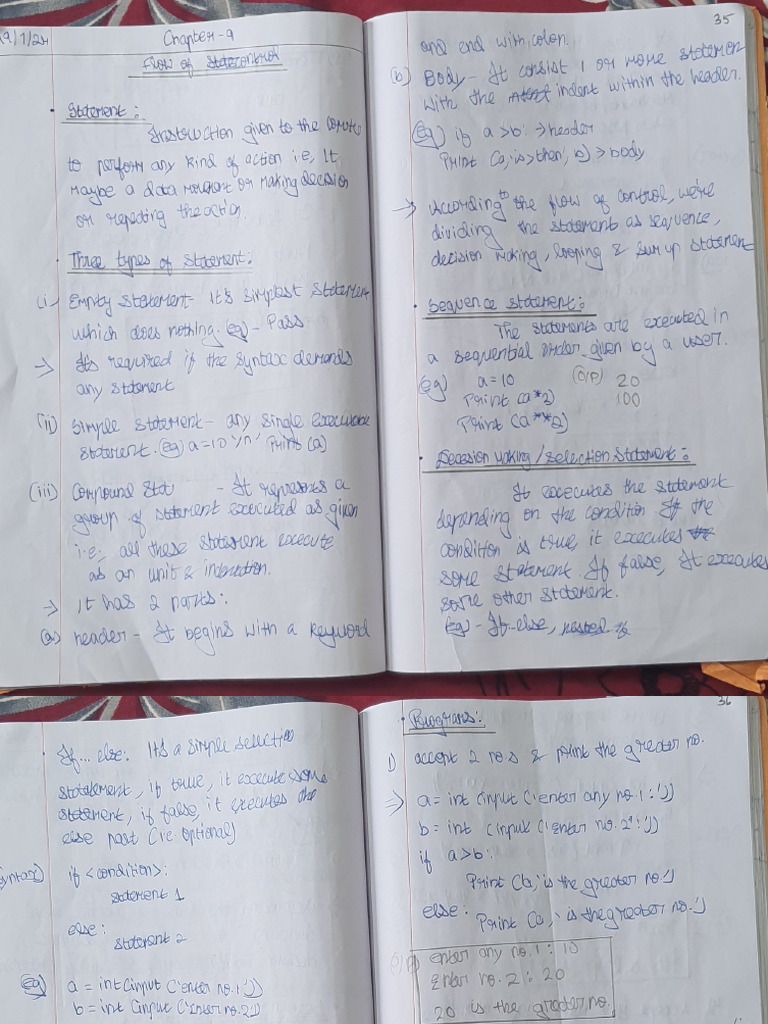 19/7/24
Chapter-9
Flow of Statecontrol
• Statement:
Instruction given to the computer
to perform any kind of action i.e, It
maybe a data movement or making decision
or repeating the action.
• Three types of Statement:
(i) Empty Statement - It's simplest statement
which does nothing. eg - Pass
→ It's required if the syntax demands
any statement
(ii) Simple Statement - any single executable
statement. eg) a=10 \n' Print (a)
(iii) Compound Stat - It represents a
group of statement executed as given
i.e, all these statement execute
as an unit & indentation.
→ it has 2 parts:
(a) header - It begins with a keyword
35
and end with colon.
(b) Body - It consist 1 or more statemen
with the indent within the header.
(eg) if a >b: → header
Print (a, is > then', b) → body
→ According to the flow of control, we're
dividing the statement as sequence,
decision making, looping & Jump statement
• Sequence statement:
The statements are executed in
a sequential order given by a user.
(eg) a=10 (O/P) 20
Print (a*2) 100
Print (a**2)
• Decession making / selection statement:
It excecutes the statement
depending on the condition If the
condition is true, it executes the
some statement. If false, It executes
some other statement.
(eg) - If-else, nested if
• If... else: It's a simple selection
statatement, if true, it execute some
statement, if false, it executes the
else part (i.e. optional)
syntax) if <condition>:
statement 1
else:
statement 2
(eg) a = int(input ('enter no.1'))
b = int (input ('Enter no.2'))
36
• Programs:
1) accept 2 no.s & print the greater no.
⇒ a = int (input ('enter any no.1:'))
b = int (input ('enter no.2:'))
if a>b:
Print (a, 'is the greater no.')
else:
Print (a, 'is the greater no.')
(O/P) enter any no.1: 10
Enter no. 2: 20
20 is the greater no.